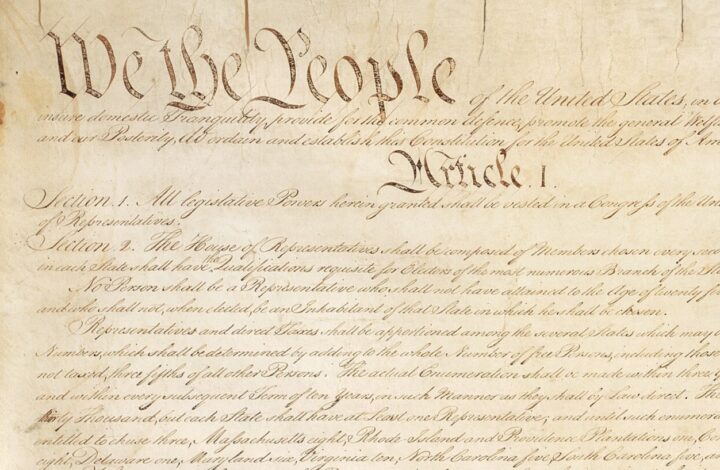 We the People of the United States, in
insure domestic Tranquility, provide for the common defence, promote the general Welf
and our Posterity, do ordain and establish this Constitution for the United States of Am
Article. I.
Section. 1. All legislative Powers herein granted shall be vested in a Congress of the Un
of Representatives.
Section. 2. The House of Representatives shall be composed of Members chosen every seco
in each State shall have the Qualifications requisite for Electors of the most numerous Branch of the Sta
No Person shall be a Representative who shall not have attained to the Age of twenty fi
and who shall not, when elected, be an Inhabitant of that State in which he shall be chosen.
Representatives and direct Taxes shall be apportioned among the several States which may
Numbers, which shall be determined by adding to the whole Number of free Persons, including those
not taxed, three fifths of all other Persons. The actual Enumeration shall be made within three Y
and within every subsequent Term of ten Years, in such Manner as they shall by Law direct. The
thirty Thousand, but each State shall have at Least one Representative; and until such enumera
entitled to chuse three, Massachusetts eight, Rhode Island and Providence Plantations one, Co
eight, Delaware one, Maryland six, Virginia ten, North Carolina five, South Carolina five, a